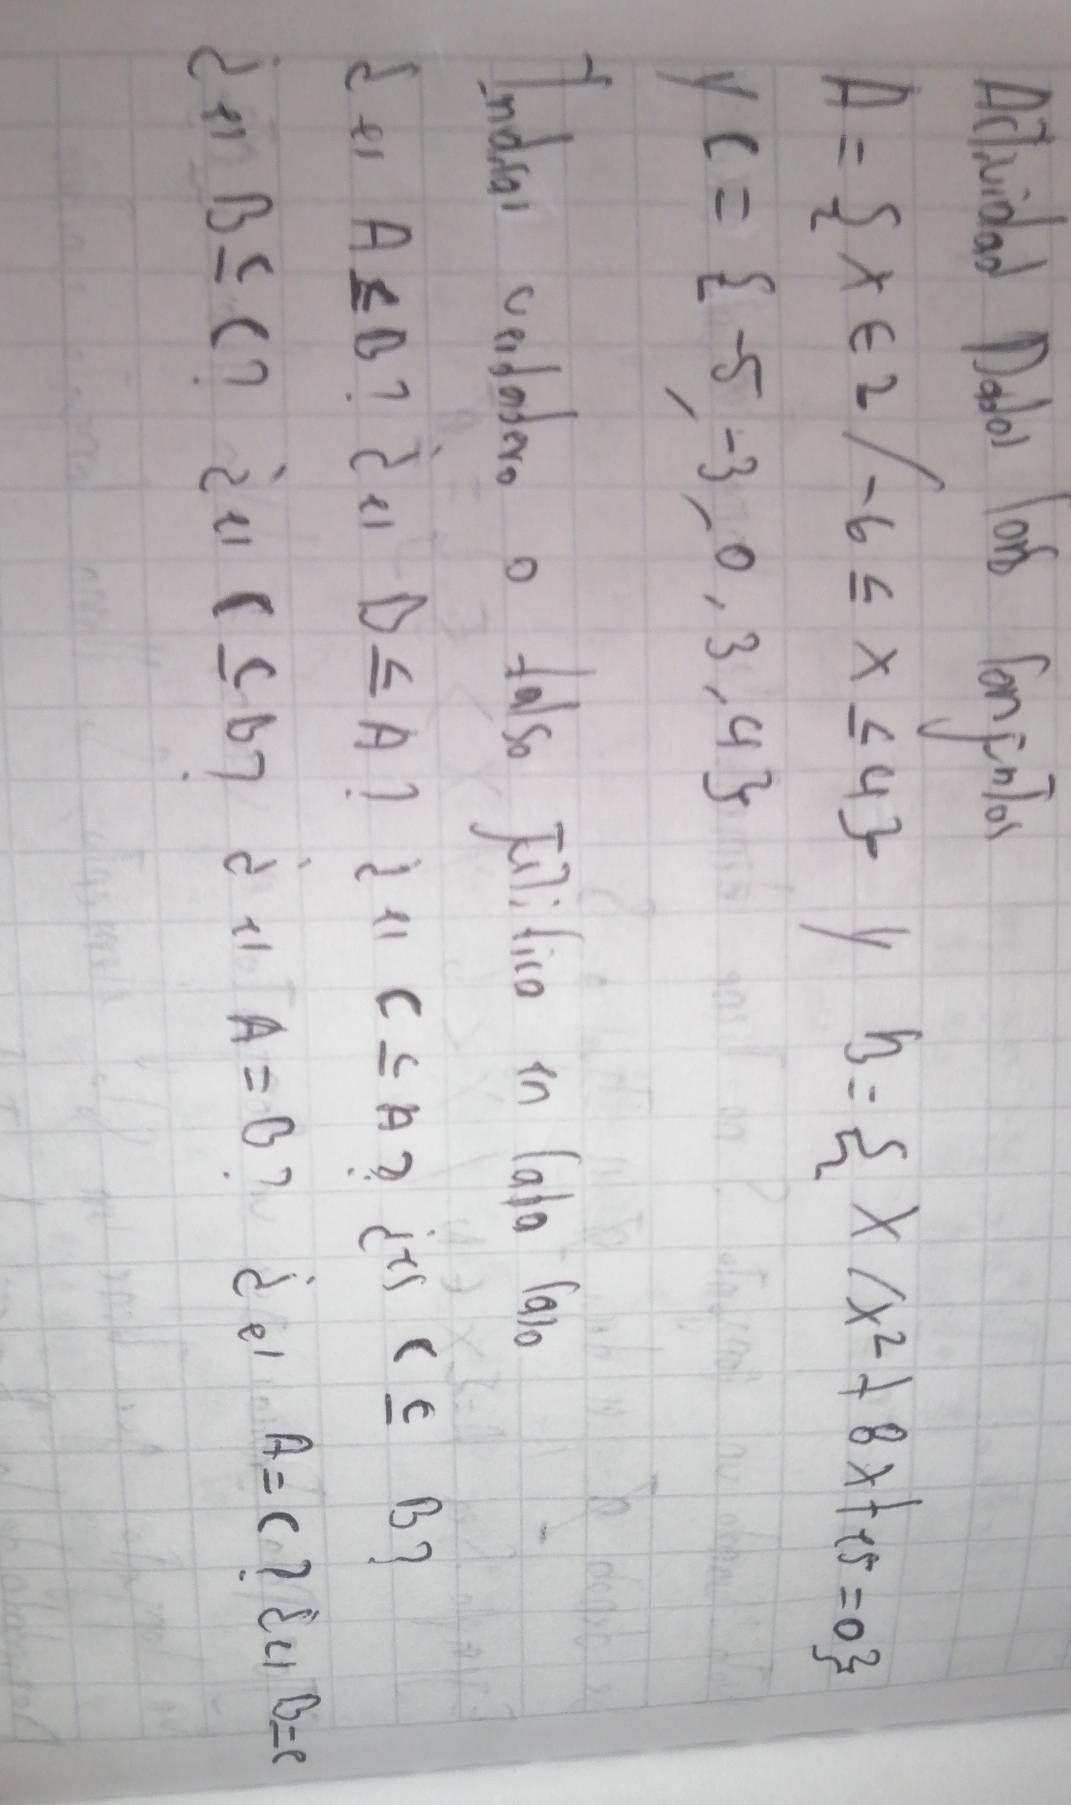 Actividad Dados los conjuntos
A = { x ∈ Z / -6 ≤ x ≤ 4} y B = { x / x² + 8x + 15 = 0}
y C = { -5, -3, 0, 3, 4}
Indicar verdadero o falso justifica en cada caso
¿es A ⊆ B? ¿es B ⊆ A? ¿es C ⊆ A? ¿es C ⊆ B?
¿es B ⊆ C? ¿es C ⊆ B? ¿es A = B? ¿es A = C? ¿es B = C